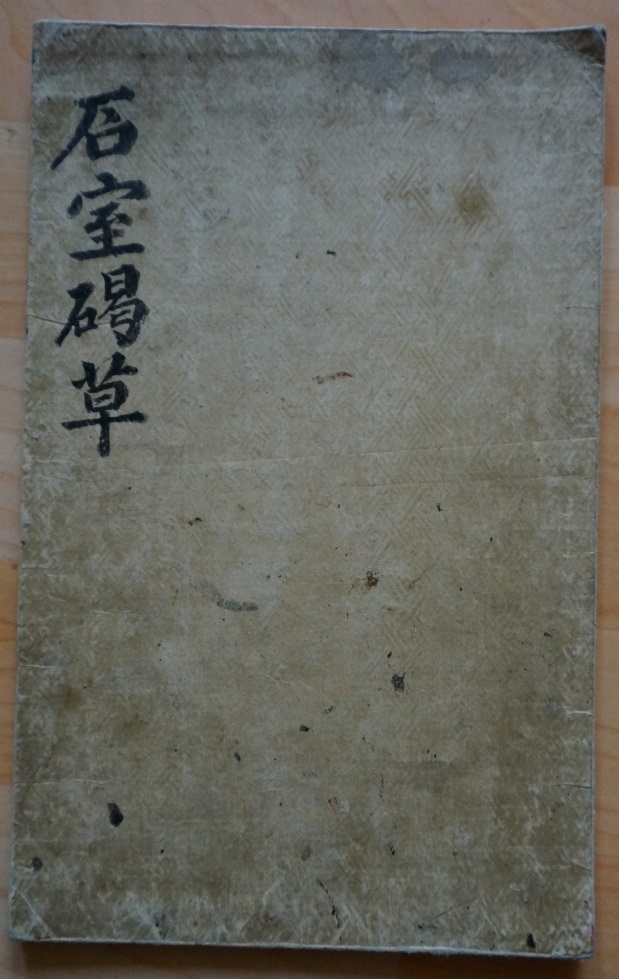 石室碣草